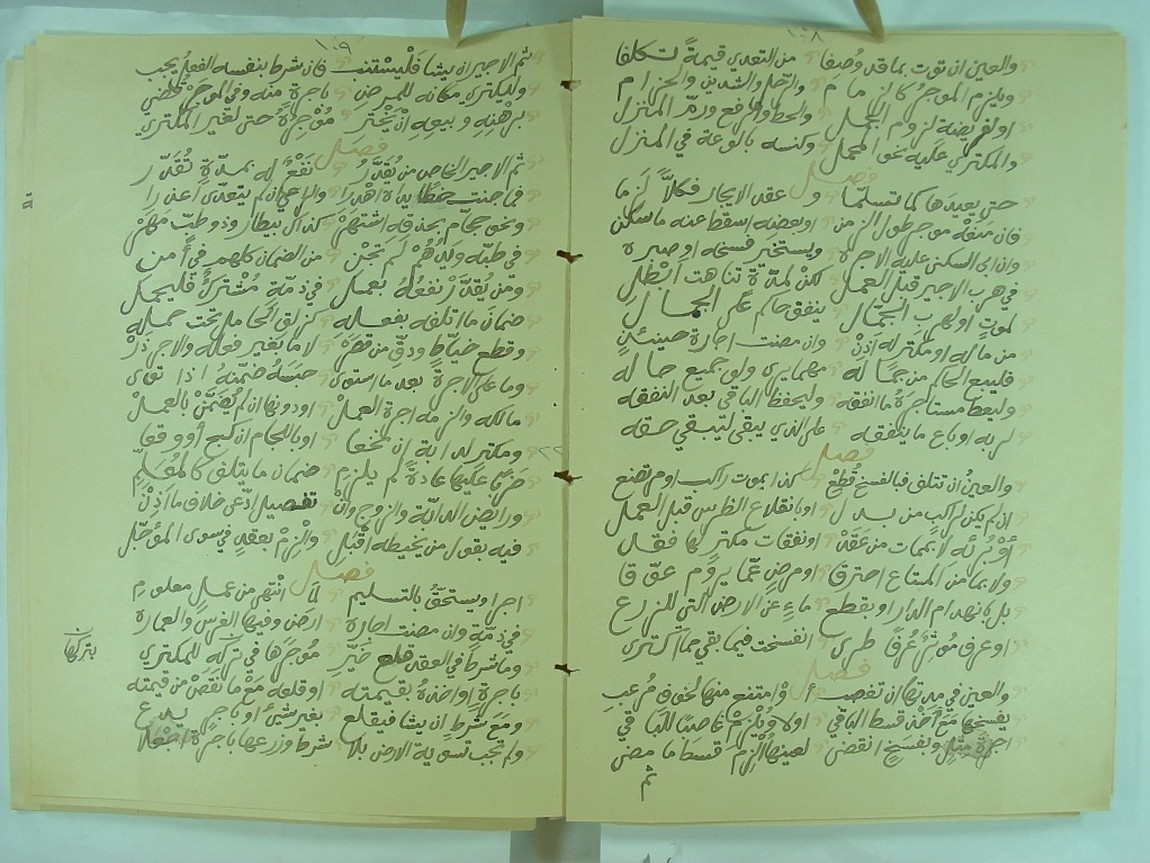 ١٠٨
والعين ان توت بما قد وُصِفا من التعدي قيمةً تكلفا
ويلزم الموجرُ كالزمام والرَّحل والشدين والحزام
او لفريضة لزوم الجمل والحط والرفع وردّ المنزل
والمكتري عليه نحو المحمل وكنسه بالوعة في المنزل
فصل
حتى يعيدها كما تسلّما و عقد الايجار فكلاًّ لزما
فان منعه موجر طول الزمن او بعضه اسقط عنه ما سكن
وان ابى السكنى عليه الاجرة ويستخير فسخه او صبره
في هرب الاجير قبل العمل لكنْ لمدّة تناهت اَبْطِلِ
لموتٍ او لهربِ الجمّال ينفق حاكم على الجمال
من ماله او مكتر له اَذِنْ وان مضت اجارة حينئذٍ
فليبع الحاكم من جماله مهما يرى ولو جميع حاله
وليعط مستاجرة ما انفقه وليحفظ الباقي بعد النفقه
لربه او باع ما ينفقه على الذي يبقى ليبقي حقه
فصل
والعينُ ان تتلف فبالفسخ قُطِعْ كذا بموت راكب او مرتضع
ان لم يكن لراكب من بدل او بانقلاع الضرس قبل العمل
أوْ بُرئه لا بممات من عَقَدْ او نفقات مكتر لها فقد
ولا بما من المتاع احترقا او مرض عمّا يروم عوّقا
بل بانهدام الدار او بقطع ماءٍ عن الارض التي للزرع
او غرق موئس غرقا طرى انفسخت فيما بقي مما اكترى
فصل
والعين في مدتها ان تغصب أوْ امتنع منها لخوف مرعب
يفسخها مع أخذ قسط الباقي اولا ويلزم غاصبًا للباقي
اجرة مثل وبفسخ انقضى لعينها اُلزم قسط ما مضى
ثم
١٠٩
ثم الاجير ان يشا فليستنب فان شرط بنفسه الفعل يجب
وليكتري مكانه للمرض باجرة منه وفي الموجر قُضي
برهنه وبيعه انْ يَخْتَر مُؤْجرُهُ حتى لغير المكتري
فصل
ثم الاجير الخاص من يُقَدَّرُ نَفْعٌ له بمدّةٍ تُقَدَّر
فما جنت خطا يداه اهدرا والراعي ان لم يتعدّى اعذرا
ونحو حجّام بحذقه اشتهرْ كذاك بيطار وذو طبّ مَهَرْ
في طبّه ويَدُهُمْ لم تَجْنِ من الضمان كلهم في أمن
ومن يُقَدَّرْ نفعُهُ بعمل في ذمّة مُشْتَركٌ فليحمل
ضمانَ ما اتلفه بفعله كزلق الحامل تحت حمله
وقطع خيّاطٍ ودقٍّ من قصَرْ لا ما بغير فعله والاجر ذرْ
وما على الاجرة بعد ما استوى حبسَهُ ضمّنهُ اذا توى
مالكه والزمه اجرة العملْ او دونها ان لم يُضَمَّنْ بالعملْ
ومكتر لدابة ان نخعا او باللجام ان كبح أو وقعا
ضربًا عليها عادةً لم يلزم ضمان ما يتلف كالمُعَلِّمِ
ورايض الدابّة والزوج وانْ تفصيل ادّعى خلاف ما اَذِنْ
فيه بقول من يخيطه اقْبَل والْزِمْ بعقدٍ في سوى المؤجّل
فصل
اجرا ويستحقُّ بالتسليم لمّا انْتهى من عمل معلوم
في ذمّةٍ وان مضت اجاره ارضٌ وفيها الغرس والعماره
وما شرط في العقد قلع خيّر مُوْجرَها في تركه للمكتري
باجرةٍ او اخذهُ بقيمته او قلعه مَعْ ما نَقَصْ من قيمته
ومَعَ شَرْطٍ ان يشا فيقلع بغير شيءٍ او باجرٍ يدع
ولم تجب تسوية الارض بلا شرط وزرعها باجرة اجعلا
بتركها